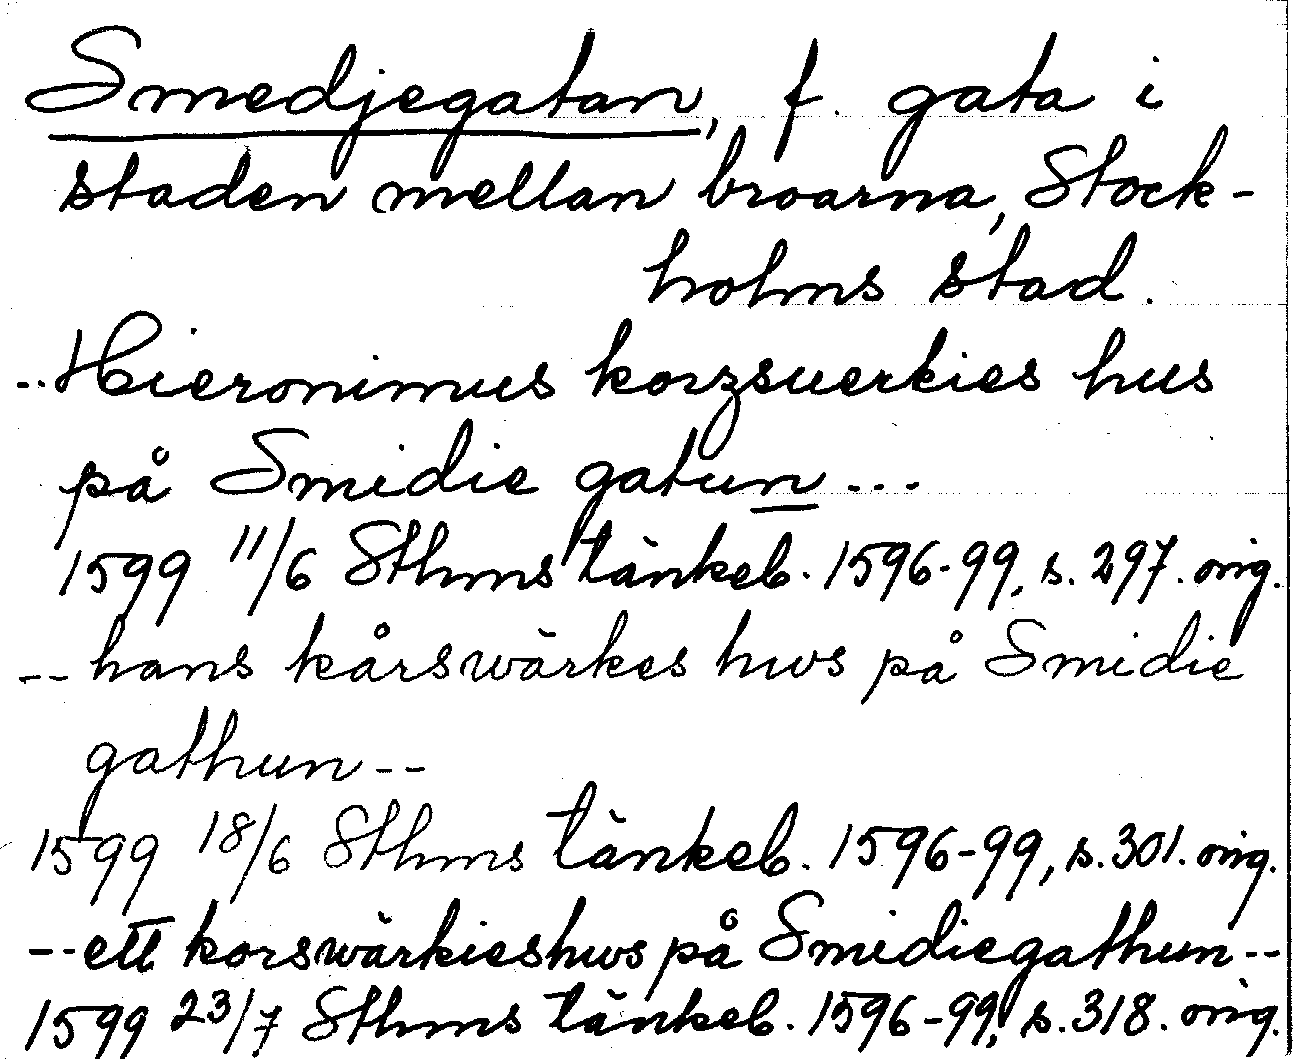 Smedjegatan, f. gata i
staden mellan broarna, Stock-
holms stad.
--Hieronimus korzsuerkies hus
på Smidie gatun ...
1599 11/6 Sthms tänkeb. 1596-99, s. 297. orig.
-- hans kårswärkes hws på Smidie
gathun --
1599 18/6 Sthms tänkeb. 1596-99, s. 301. orig.
-- ett korswärkieshws på Smidiegathun --
1599 23/7 Sthms tänkeb. 1596-99, s. 318. orig.